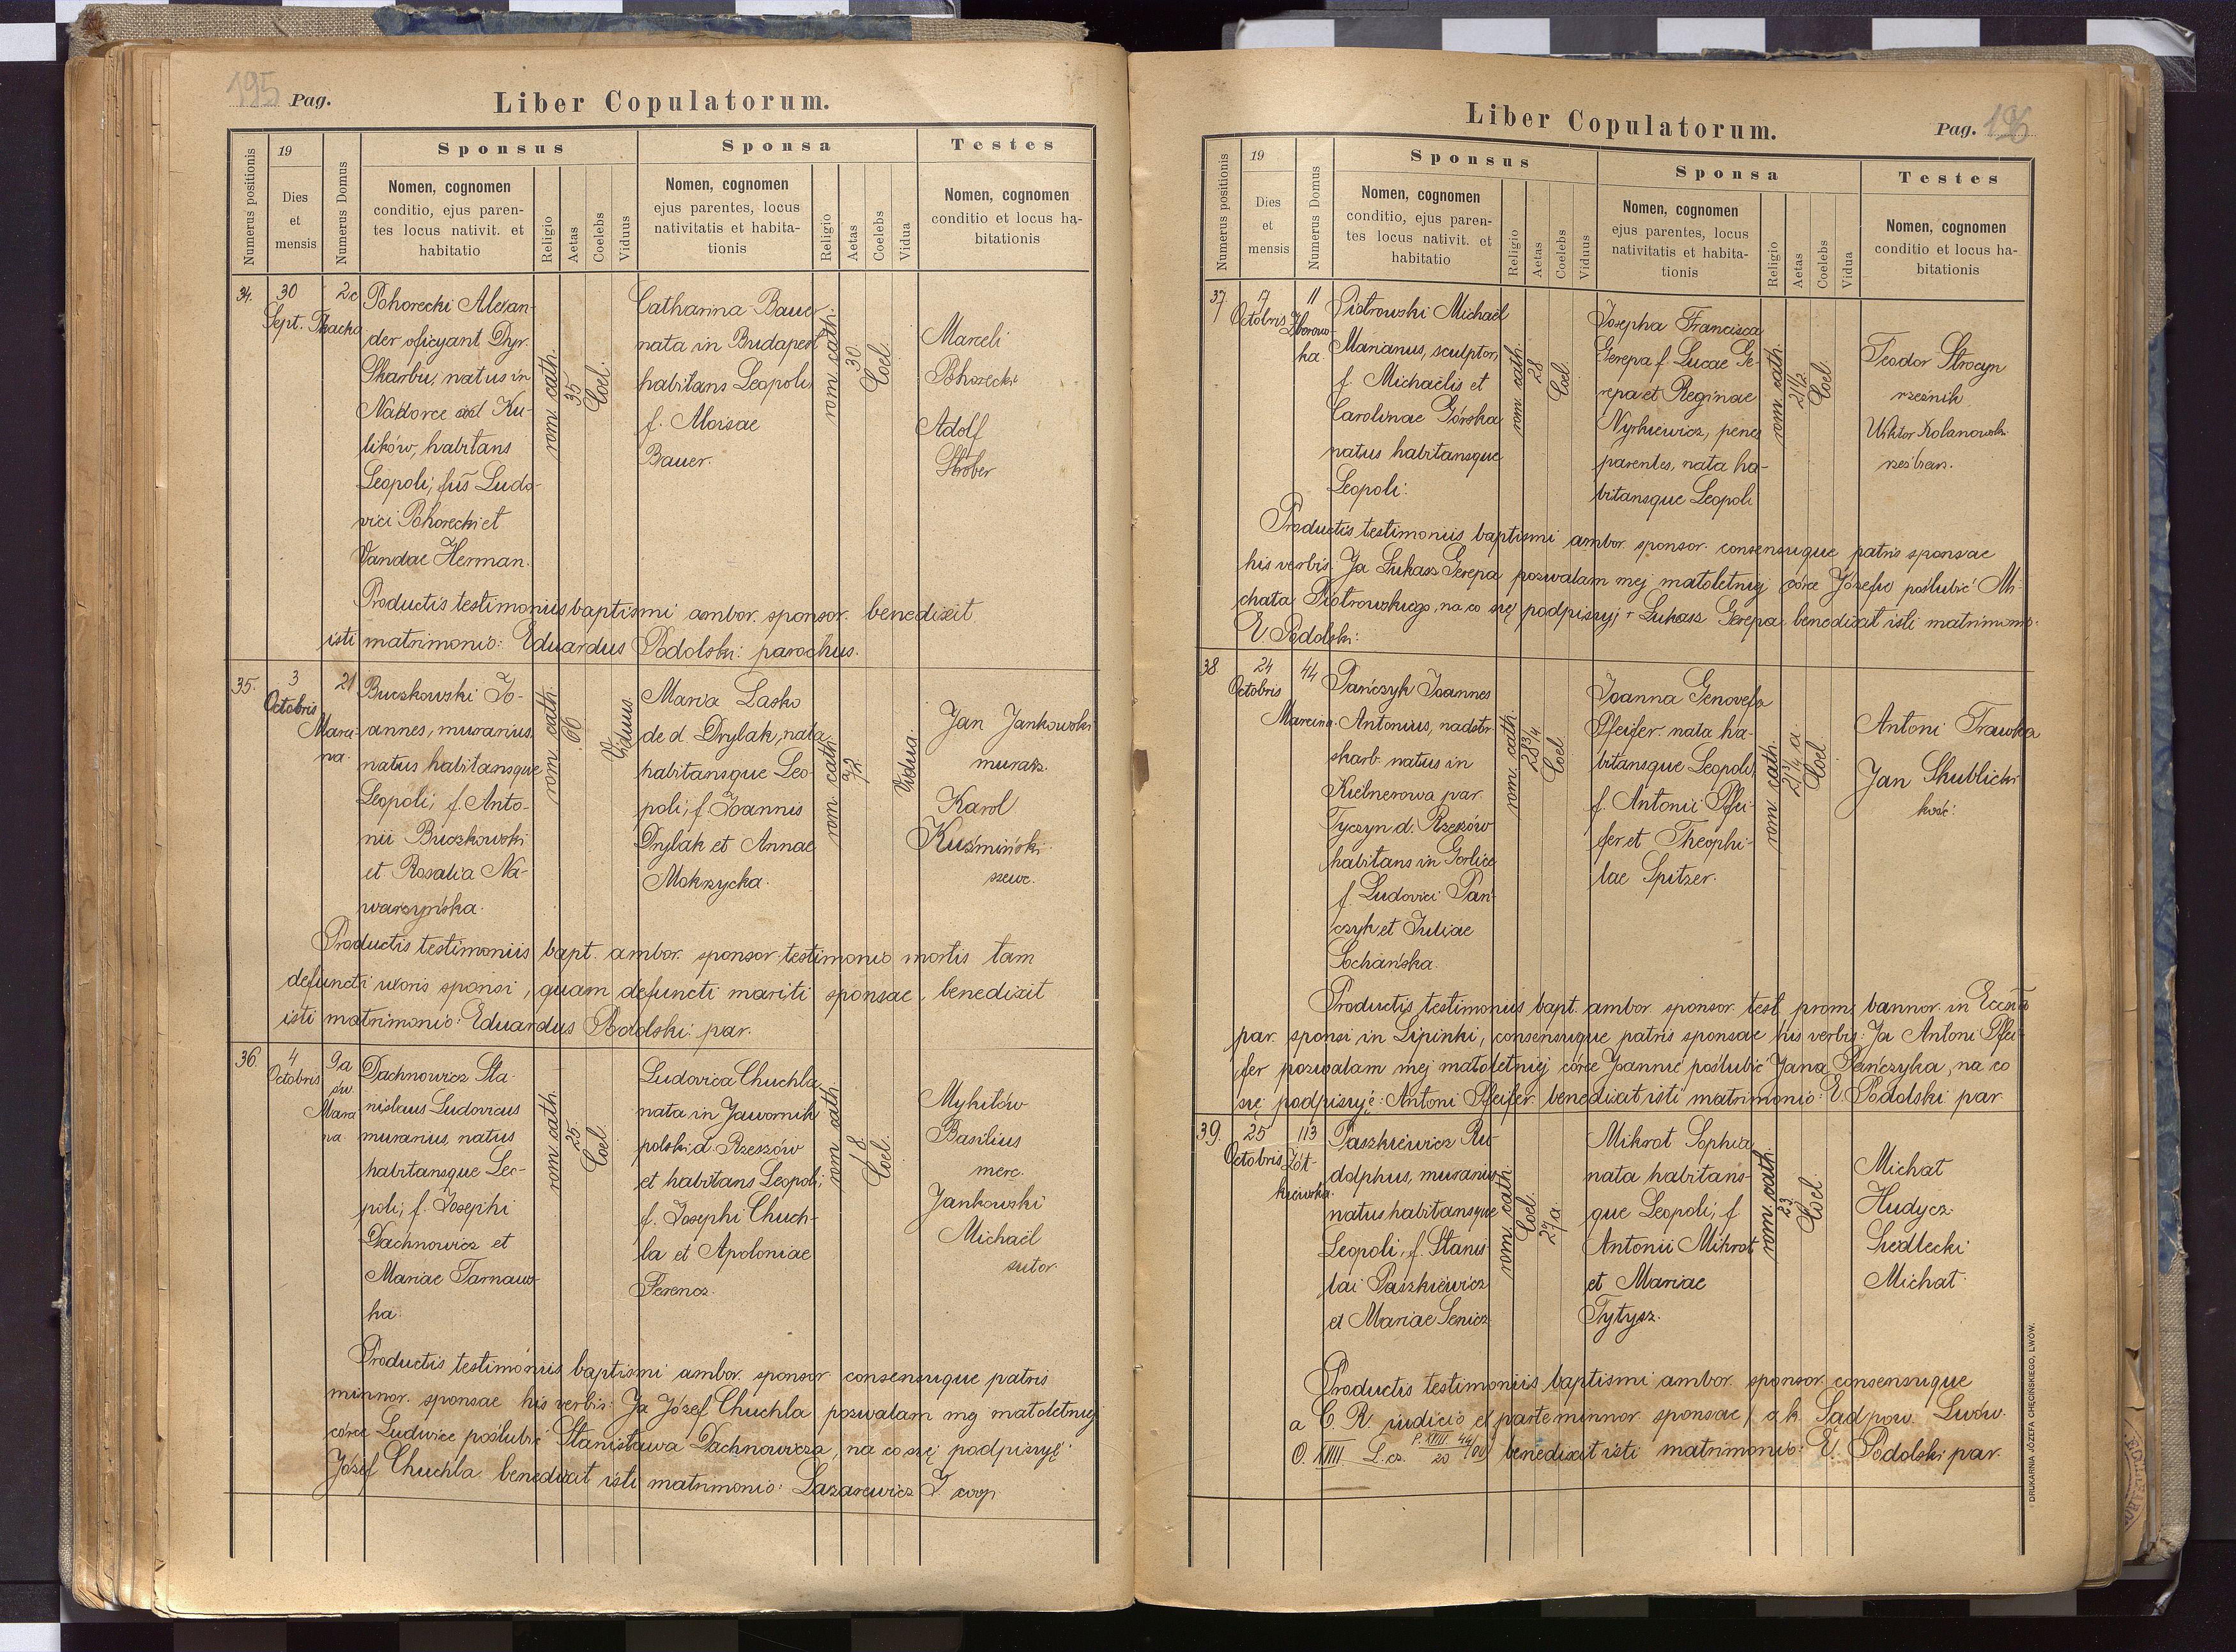 195 Pag.
Liber Copulatorum.
Numerus positionis
19
Dies
et
mensis
Numerus Domus
Sponsus
Nomen, cognomen
conditio, ejus paren-
tes locus nativit. et
habitatio
Religio
Aetas
Coelebs
Viduus
Sponsa
Nomen, cognomen
ejus parentes, locus
nativitatis et habita-
tionis
Religio
Aetas
Coelebs
Vidua
Testes
Nomen, cognomen
conditio et locus ha-
bitationis
34.
30
Sept.
2c
Tkacka
Pohorecki Alexan-
der oficyant Dyr.
Skarbu, natus in
Nadorce ad Ku-
lików, habitans
Leopoli; fus Ludo-
vici Pohorecki et
Vandae Herman.
rom. cath.
35
Coel.
Catharina Bauer
nata in Budapest
habitans Leopoli,
f. Aloisae
Bauer.
rom. cath.
30.
Coel.
Marceli
Pohorecki
Adolf
Stober
Productis testimoniis baptismi ambor. sponsor. benedixit
isti matrimonio: Eduardus Podolski: parochus.
35.
3
Octobris
21
Marci-
na.
Buczkowski Jo-
annes, murarius,
natus habitansque
Leopoli; f. Anto-
nii Buczkowski
et Rosalia Na-
warzyńska.
rom. cath.
66
Viduus.
Maria Lasko
de d. Drylak, nata
habitansque Leo-
poli; f. Joannis
Drylak et Annae
Mokrzycka.
rom. cath.
72
Vidua.
Jan Jankowski
murarz.
Karol
Kuśmiński
szewc.
Productis testimoniis bapt. ambor. sponsor. testimonio mortis tam
defuncti uxoris sponsi, quam defuncti mariti sponsae, benedixit
isti matrimonio: Eduardus Podolski par.
36.
4
Octobris
9a
św.
Marci-
na.
Dachnowicz Sta-
nislaus Ludovicus
murarius, natus
habitansque Leo-
poli; f. Josephi
Dachnowicz et
Mariae Tarnaws-
ka.
rom. cath.
25.
Coel.
Ludovica Chuchla
nata in Jawornik
polski d. Rzeszów
et habitans Leopoli;
f. Josephi Chuch-
la et Apoloniae
Ferencz.
rom. cath.
18.
Coel.
Mykitów
Basilius
merc.
Jankowski
Michaël
sutor.
Productis testimoniis baptismi ambor. sponsor consensuque patris
minnor. sponsae his verbis: Ja Józef Chuchla pozwalam mej małoletniej
córce Ludwice poślubić Stanisława Dachnowicza, na co się podpisuję:
Józef Chuchla benedixit isti matrimonio: Lazarewicz J. coop.
Liber Copulatorum.
Pag. 196
Numerus positionis
19
Dies
et
mensis
Numerus Domus
Sponsus
Nomen, cognomen
conditio, ejus paren-
tes locus nativit. et
habitatio
Religio
Aetas
Coelebs
Viduus
Sponsa
Nomen, cognomen
ejus parentes, locus
nativitatis et habita-
tionis
Religio
Aetas
Coelebs
Vidua
Testes
Nomen, cognomen
conditio et locus ha-
bitationis
37.
17
Octobris
11
Zborows-
ka
Piotrowski Michaël
Marianus, sculptor,
f. Michaëlis et
Carolinae Górska
natus habitansque
Leopoli.
rom. cath.
28
Coel.
Josepha Francisca
Gerepa f. Lucae Ge-
repa et Reginae
Nyrkiewicz, penes
parentes, nata ha-
bitansque Leopoli
rom. cath.
21 1/2
Coel.
Teodor Strocyn
rzeźnik
Wiktor Kolanowski
rzeźbiarz.
Productis testimoniis baptismi ambor. sponsor. consensuque patris sponsae
his verbis: Ja Łukasz Gerepa pozwalam mej małoletniej córce Józefie poślubić Mi-
chała Piotrowskiego, na co się podpisuję + Łukasz Gerepa benedixit isti matrimonio.
E. Podolski:
38.
24
Octobris
44
Marcina.
Pańczyk Joannes
Antonius, nadstr.
skarb. natus in
Kielnerowa par.
Tyczyn d. Rzeszów
habitans in Gorlice
f. Ludovici Pań-
czyk et Juliae
Sochańska.
rom. cath.
28 3/4
Coel.
Joanna Genovefa
Pfeifer nata ha-
bitansque Leopoli,
f. Antonii Pfei-
fer et Theophi-
lae Spitzer.
rom. cath.
21 1/4 a.
Coel.
Antoni Trawka
Jan Skublicki
kośc.
Productis testimoniis bapt. ambor. sponsor. test. prom. bannor. in Eccsia
par. sponsi in Lipinki, consensuque patris sponsae his verbis: Ja Antoni Pfei-
fer pozwalam mej małoletniej córce Joannie poślubić Jana Pańczyka, na co
się podpisuję: Antoni Pfeifer. benedixit isti matrimonio: E. Podolski par.
39.
25
Octobris
113
Żół-
kiewska.
Paszkiewicz Ru-
dolphus, murarius
natus habitansque
Leopoli, f. Stanis-
lai Paszkiewicz
et Mariae Senicz
rom. cath.
Coel.
27 a.
Mikrot Sophia
nata habitans-
que Leopoli; f.
Antonii Mikrot
et Mariae
Tytysz.
rom. cath.
23.
Coel.
Michał
Hudycz.
Siedlecki
Michał.
Productis testimoniis baptismi ambor. sponsor. consensuque
a C. R. judicio ex parte minnor. sponsae / c. k. Sąd pow. Lwów.
O. XVIII L. cs. P. XVIII 44/04 20 benedixit isti matrimonio: E. Podolski par.
DRUKARNIA JÓZEFA CHĘCIŃSKIEGO, LWÓW.